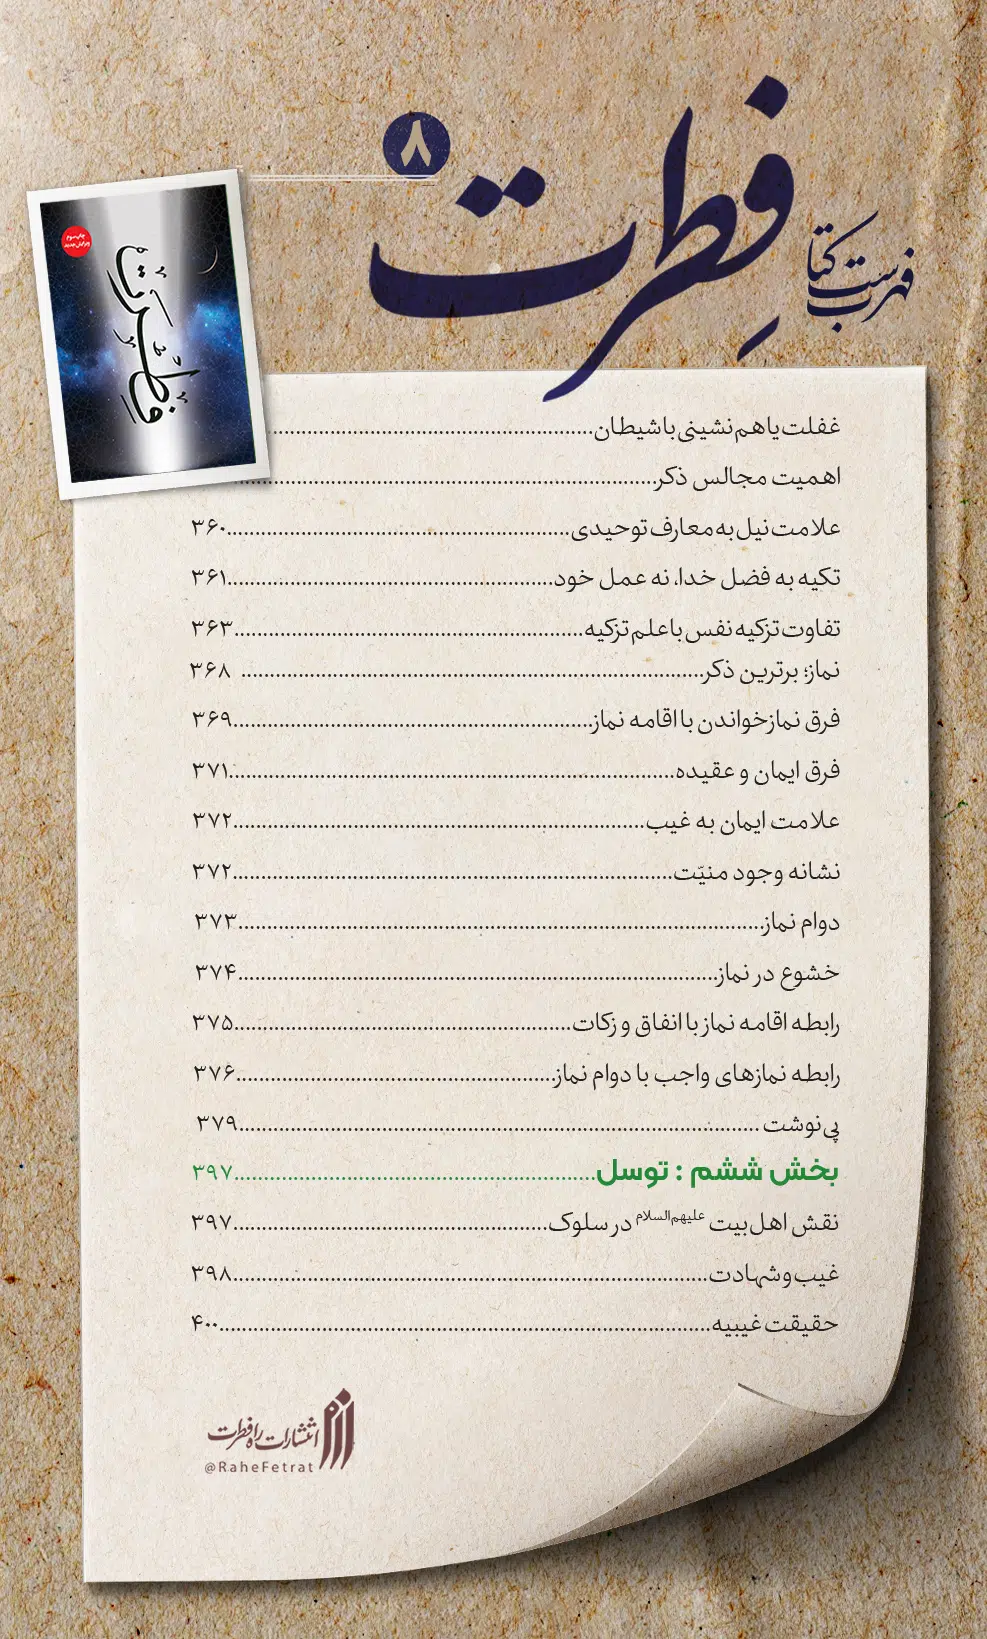 فهرست کتاب
فِطرت
۸
چاپ سوم
ویرایش جدید
فِطْرَت
غفلت یا هم نشینی با شیطان..........
اهمیت مجالس ذکر..........
علامت نیل به معارف توحیدی..........۳۶۰
تکیه به فضل خدا، نه عمل خود..........۳۶۱
تفاوت تزکیه نفس با علم تزکیه..........۳۶۳
نماز؛ برترین ذکر..........۳۶۸
فرق نمازخواندن با اقامه نماز..........۳۶۹
فرق ایمان و عقیده..........۳۷۱
علامت ایمان به غیب..........۳۷۲
نشانه وجود منیّت..........۳۷۲
دوام نماز..........۳۷۳
خشوع در نماز..........۳۷۴
رابطه اقامه نماز با انفاق و زکات..........۳۷۵
رابطه نمازهای واجب با دوام نماز..........۳۷۶
پی‌نوشت..........۳۷۹
بخش ششم : توسل..........۳۹۷
نقش اهل‌بیت علیهم‌السلام در سلوک..........۳۹۷
غیب و شهادت..........۳۹۸
حقیقت غیبیه..........۴۰۰
انتشارات راه فطرت
@RaheFetrat